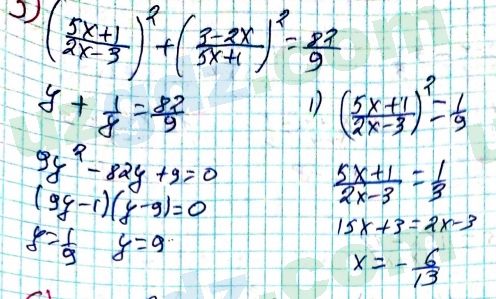 5) ((5x+1)/(2x-3))² + ((3-2x)/(5x+1))² = 82/9
y + 1/y = 82/9
9y² - 82y + 9 = 0
(9y-1)(y-9) = 0
y = 1/9 y = 9
1) ((5x+1)/(2x-3))² = 1/9
(5x+1)/(2x-3) = 1/3
15x+3 = 2x-3
x = - 6/13